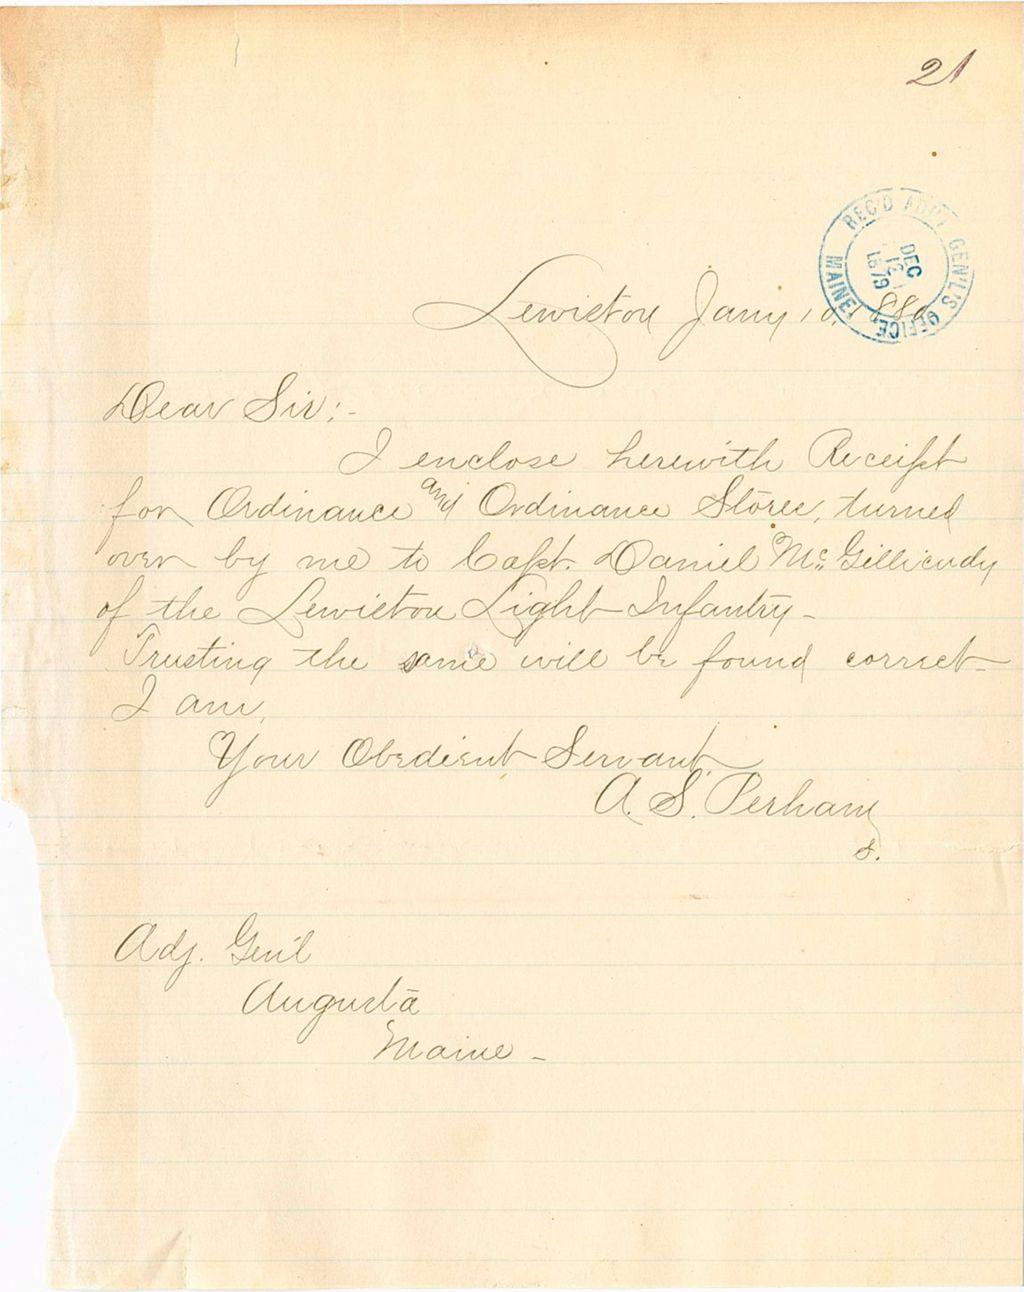 21
REC'D ADJ'T GEN'L'S OFFICE, MAINE.
DEC
1879
Lewiston Jany 10, 1880
Dear Sir:-
I enclose herewith Receipt
for Ordinance and Ordinance Stores, turned
over by me to Capt. Daniel McGillicudy
of the Lewiston Light Infantry-
Trusting the same will be found correct-
I am,
Your Obedient Servant
A. S. Perham
s.
Adj. Genl
Augusta
Maine -